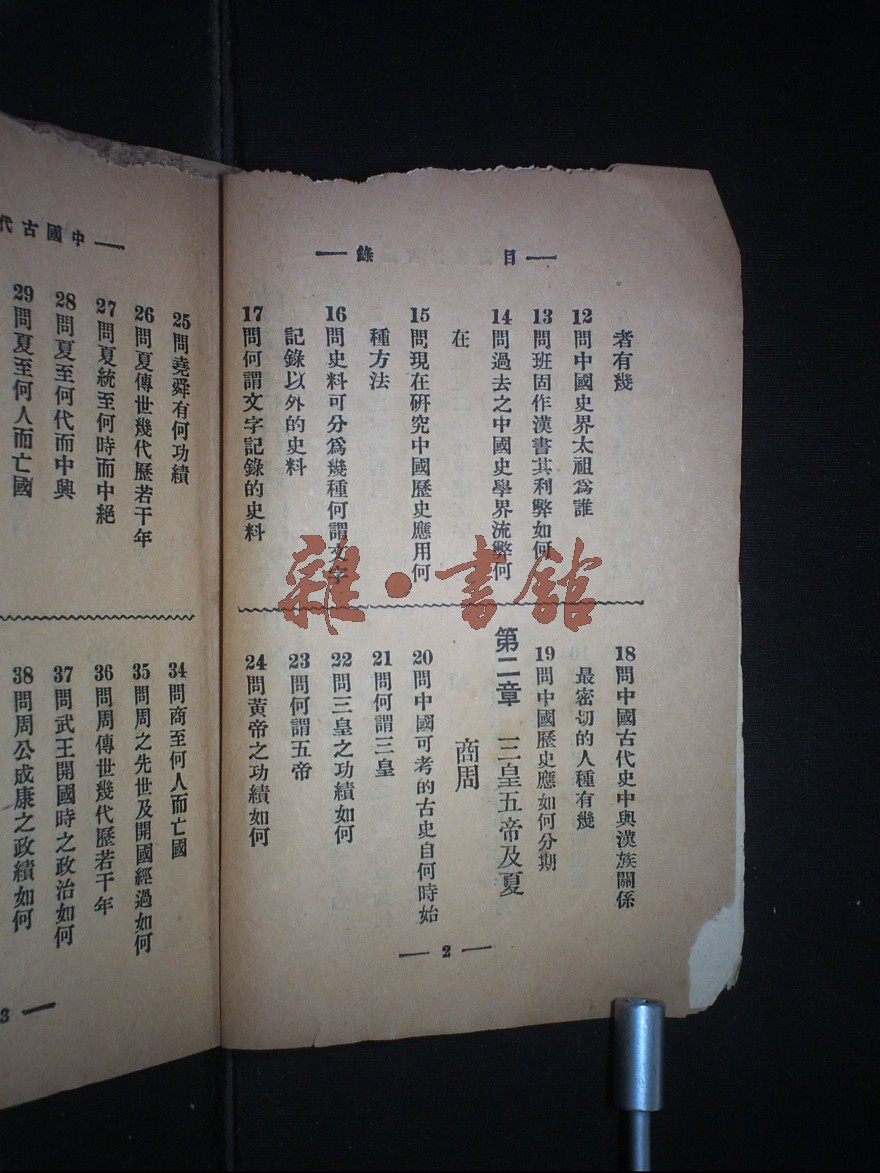 — 目錄 —
者有幾
12 問中國史界太祖為誰
13 問班固作漢書其利弊如何
14 問過去之中國史學界流弊何
在
15 問現在研究中國歷史應用何
種方法
16 問史料可分為幾種何謂文字
記錄以外的史料
17 問何謂文字記錄的史料
18 問中國古代史中與漢族關係
最密切的人種有幾
19 問中國歷史應如何分期
第二章 三皇五帝及夏
商周
20 問中國可考的古史自何時始
21 問何謂三皇
22 問三皇之功績如何
23 問何謂五帝
24 問黃帝之功績如何
— 2 —
中國古代
25 問堯舜有何功績
26 問夏傳世幾代歷若干年
27 問夏統至何時而中絕
28 問夏至何代而中興
29 問夏至何人而亡國
34 問商至何人而亡國
35 問周之先世及開國經過如何
36 問周傳世幾代歷若干年
37 問武王開國時之政治如何
38 問周公成康之政績如何
3 —
雜·書館